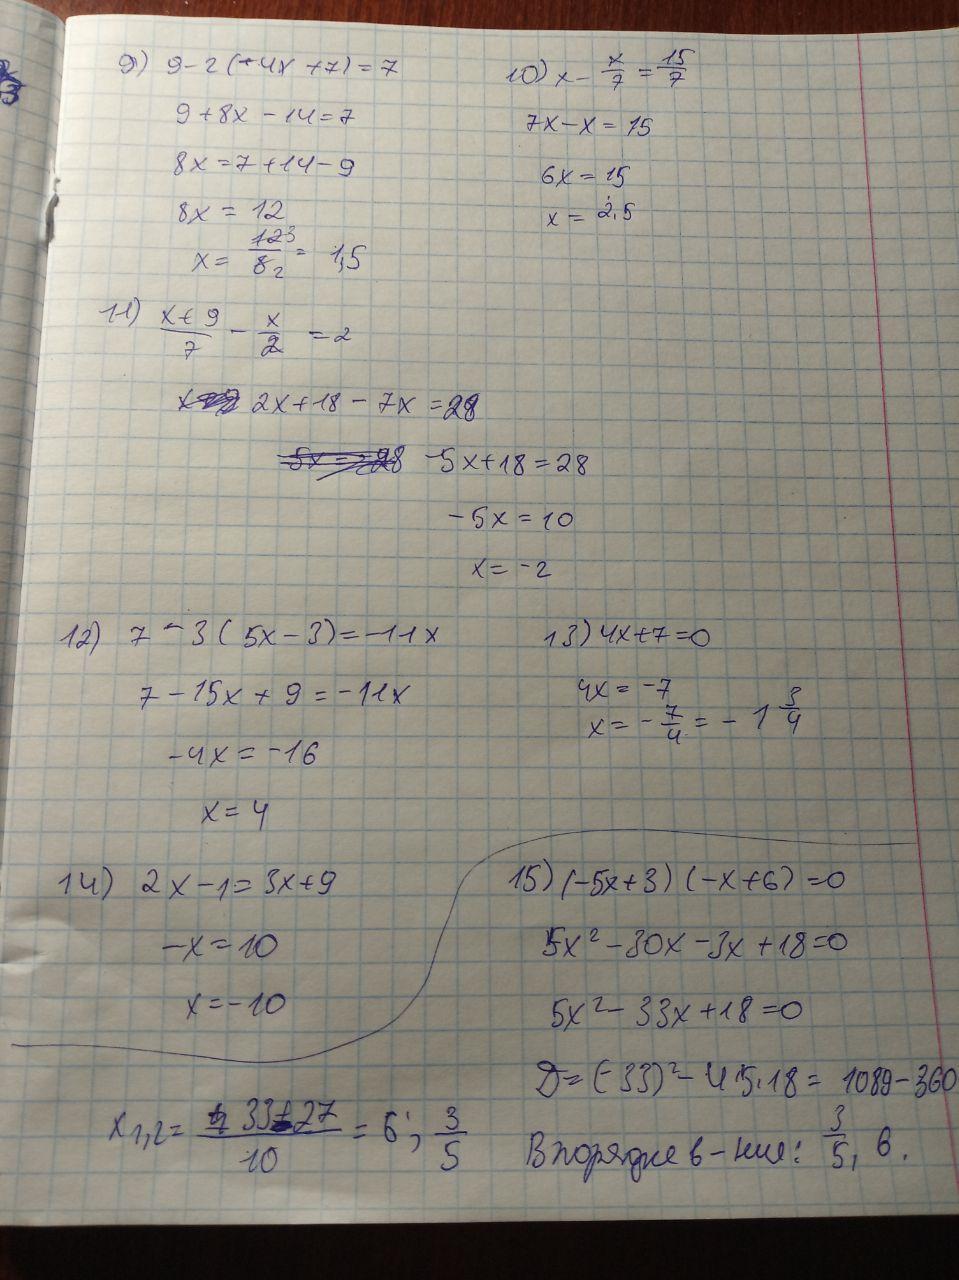 9) 9-2(-4x+7)=7
9+8x-14=7
8x=7+14-9
8x=12
x= 12 3/8 2 = 1,5
10) x - x/7 = 15/7
7x-x=15
6x=15
x=2,5
11) (x+9)/7 - x/2 = 2
2x+18-7x=28
-5x+18=28
-5x=10
x=-2
12) 7-3(5x-3)=-11x
7-15x+9=-11x
-4x=-16
x=4
13) 4x+7=0
4x=-7
x=-7/4=-1 3/4
14) 2x-1=3x+9
-x=10
x=-10
15) (-5x+3)(-x+6)=0
5x²-30x-3x+18=0
5x²-33x+18=0
D=(-33)²-4·5·18=1089-360
x1,2= (33±27)/10 = 6; 3/5
В порядке в-ния: 3/5, 6.